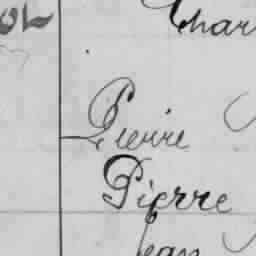 Char
Pierre
Pierre
Jean